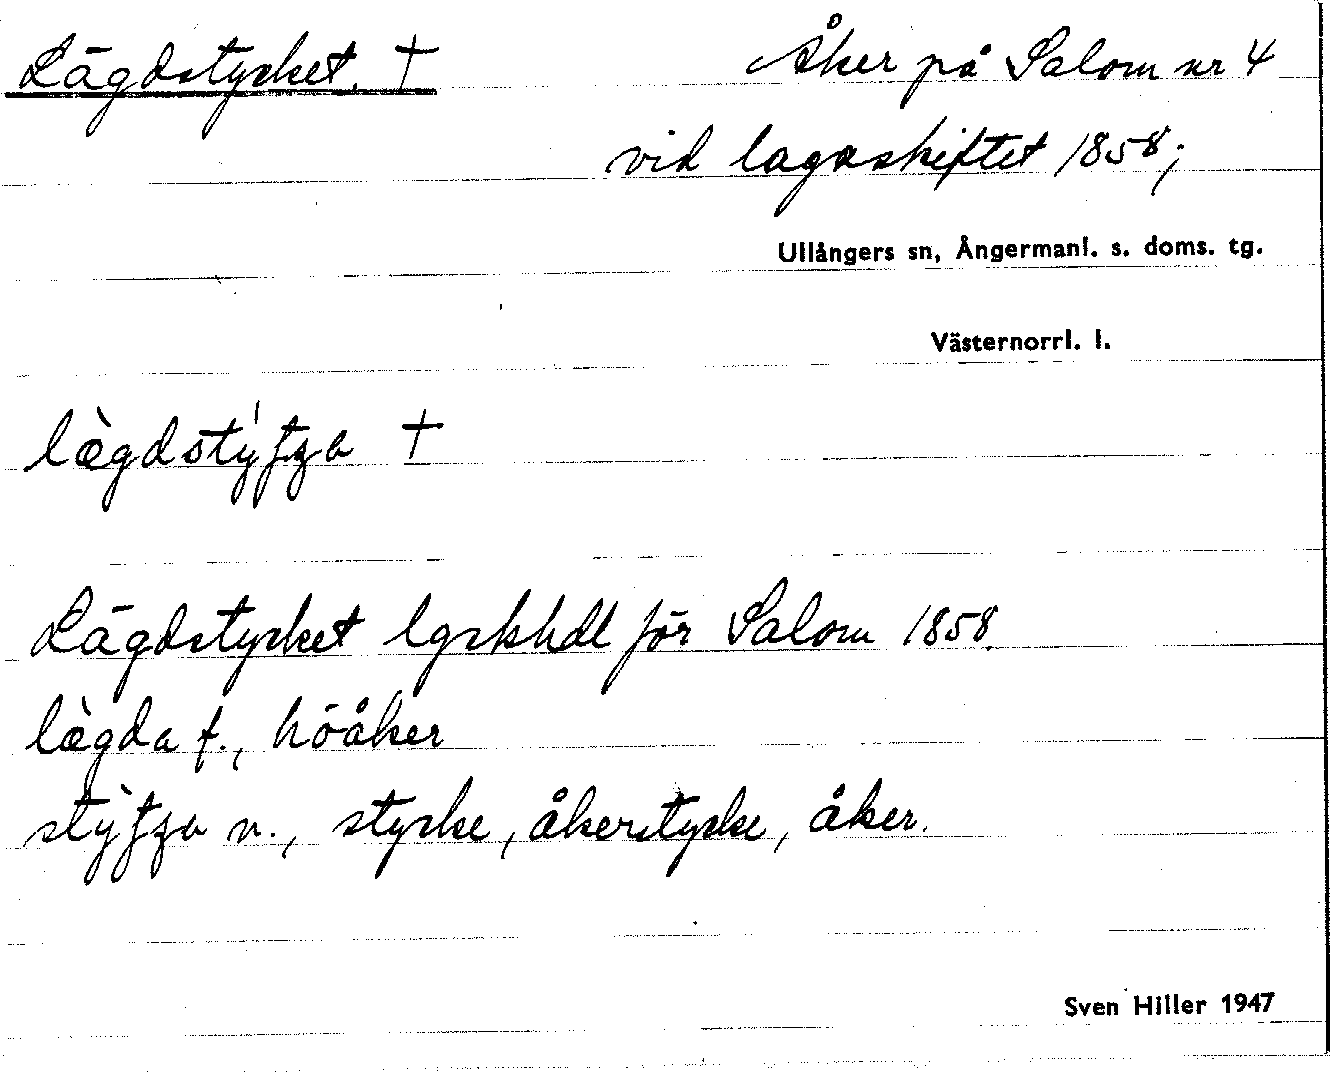 Lägdstycket. †
Åker på Salom nr 4
vid lagaskiftet 1858;
Ullångers sn, Ångermanl. s. doms. tg.
Västernorrl. l.
†
Lägdstycket lgskhdl för Salom 1858.
lægda f., höåker
n., stycke, åkerstycke, åker.
Sven Hiller 1947